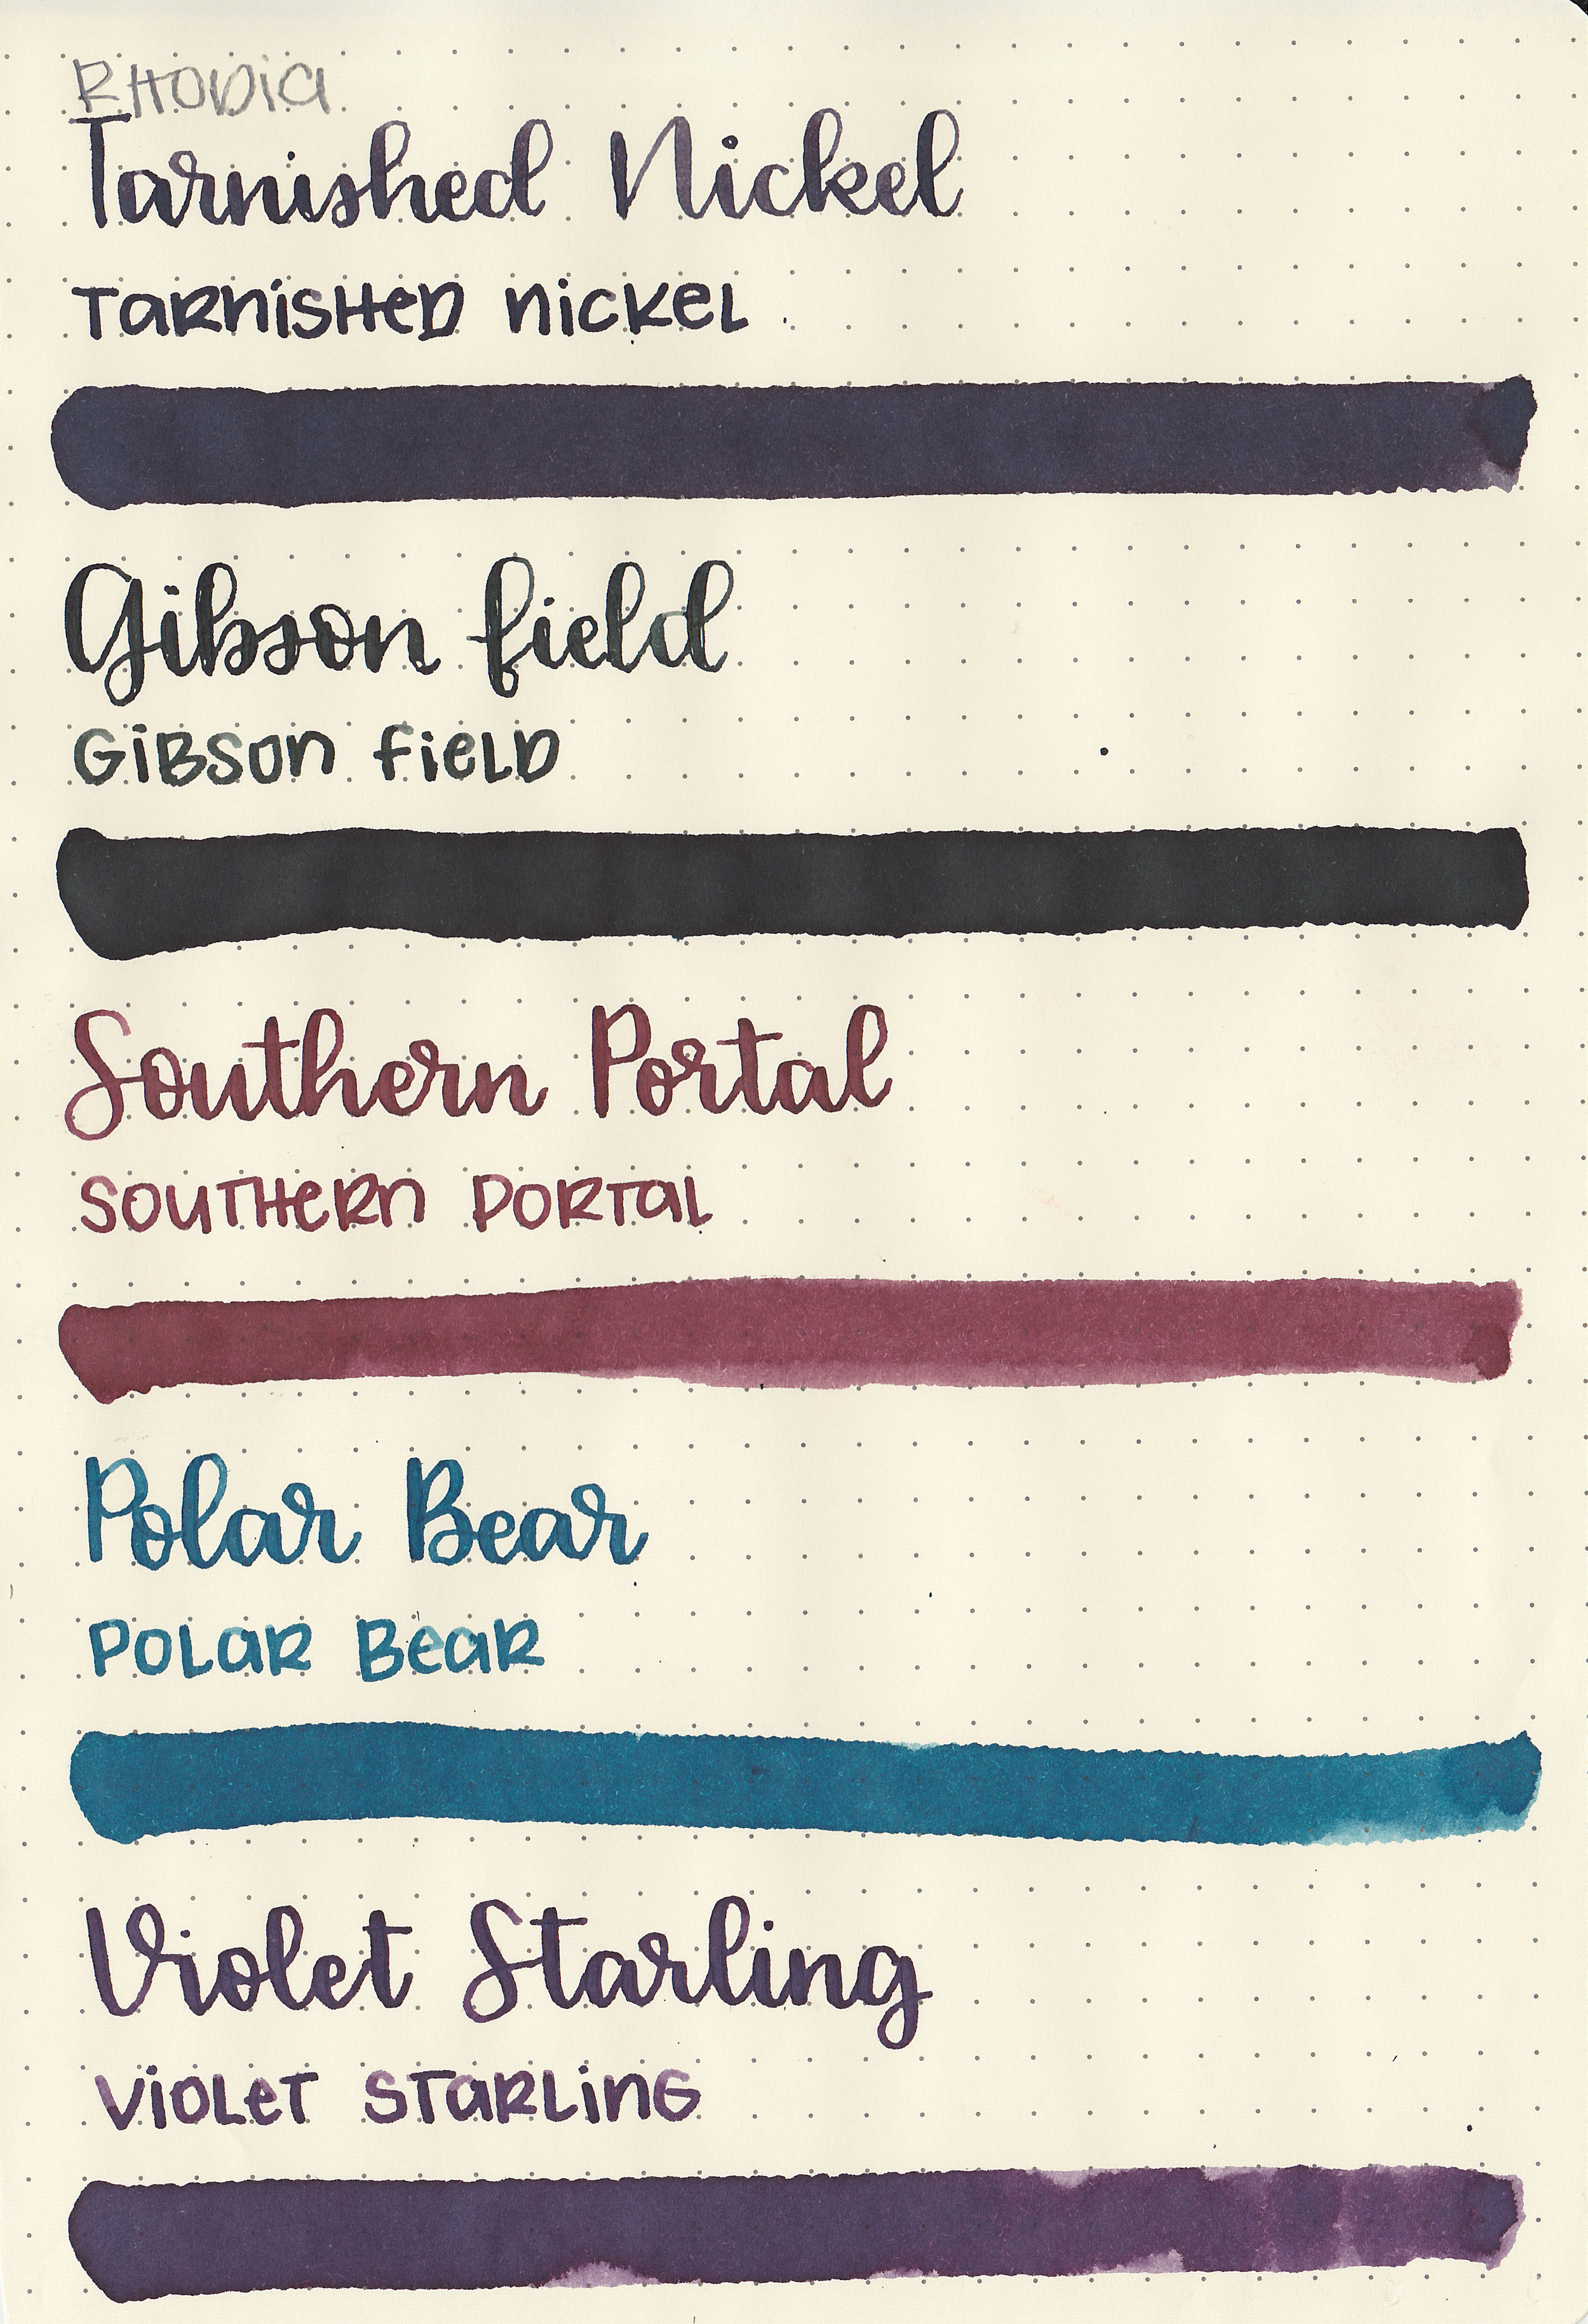 RHODIA
Tarnished Nickel
TARNISHED NICKEL
Gibson field
GIBSON FIELD
Southern Portal
SOUTHERN PORTAL
Polar Bear
POLAR BEAR
Violet Starling
VIOLET STARLING